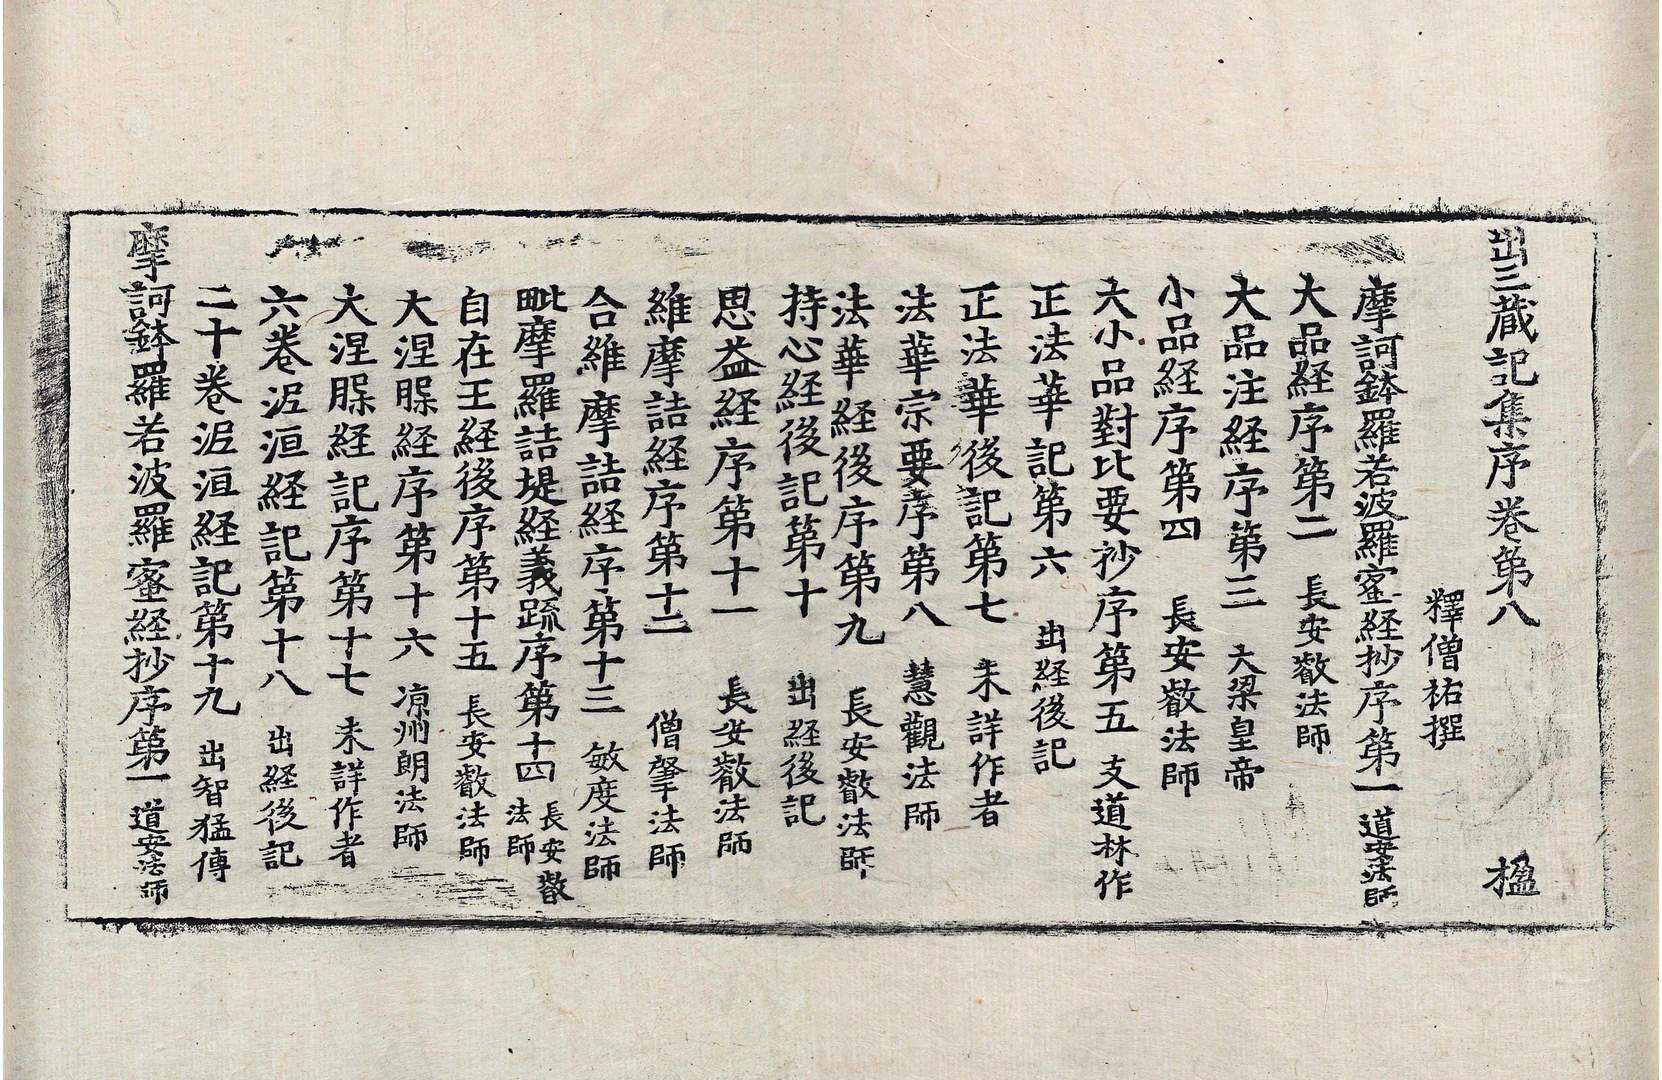 出三蔵記集序卷第八 楹
釋僧祐撰
摩訶鉢羅若波羅蜜経抄序第一 道安法師
大品経序第二 長安叡法師
大品注経序第三 大梁皇帝
小品経序第四 長安叡法師
大小品對比要抄序第五 支道林作
正法華記第六 出経後記
正法華後記第七 未詳作者
法華宗要序第八 慧觀法師
法華経後序第九 長安叡法師
持心経後記第十 出経後記
思益経序第十一 長安叡法師
維摩詰経序第十二 僧肇法師
合維摩詰経序第十三 敏度法師
毗摩羅詰堤経義䟽序第十四 長安叡法師
自在王経後序第十五 長安叡法師
大涅槃経序第十六 凉州朗法師
大涅槃経記序第十七 未詳作者
六卷泥洹経記第十八 出経後記
二十卷泥洹経記第十九 出智猛傳
摩訶鉢羅若波羅蜜経抄序第一 道安法師